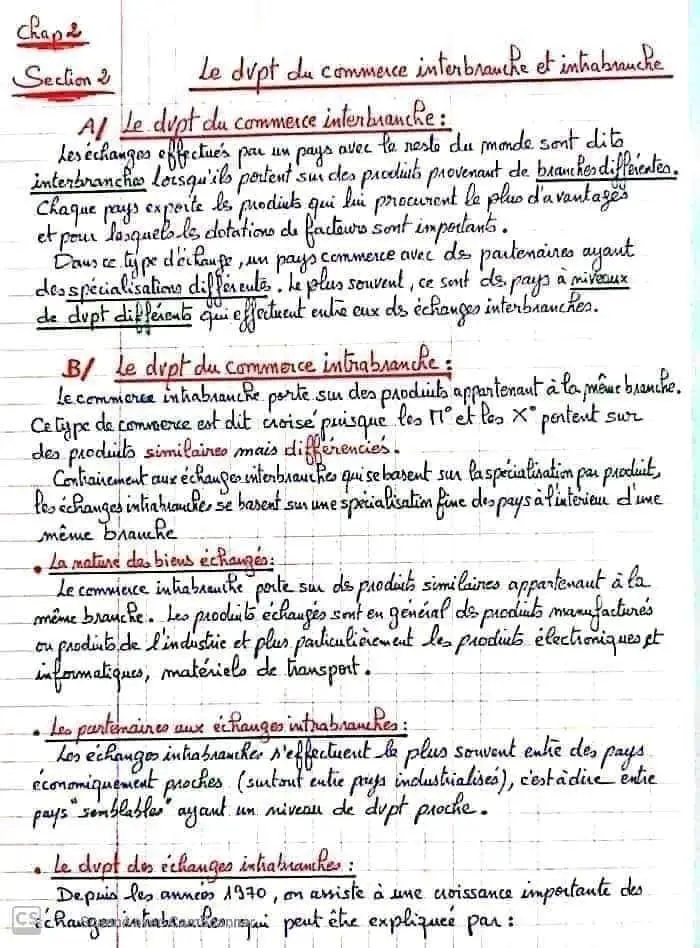 Chap 2
Section 2
Le dvpt du commerce interbranche et intrabranche
A/ Le dvpt du commerce interbranche :
Les échanges effectués par un pays avec le reste du monde sont dits
interbranches lorsqu'ils portent sur des produits provenant de branches différentes.
Chaque pays exporte les produits qui lui procurent le plus d'avantages
et pour lesquels les dotations de facteurs sont importants.
Dans ce type d'échange, un pays commerce avec des partenaires ayant
des spécialisations différentes. Le plus souvent, ce sont des pays à niveaux
de dvpt différents qui effectuent entre eux des échanges interbranches.
B/ Le dvpt du commerce intrabranche :
Le commerce intrabranche porte sur des produits appartenant à la même branche.
Ce type de commerce est dit croisé puisque les M° et les X° portent sur
des produits similaires mais différenciés.
Contrairement aux échanges interbranches qui se basent sur la spécialisation par produit,
les échanges intrabranches se basent sur une spécialisation fine des pays à l'intérieur d'une
même branche
• La nature des biens échangés :
Le commerce intrabranche porte sur des produits similaires appartenant à la
même branche. Les produits échangés sont en général des produits manufacturés
ou produits de l'industrie et plus particulièrement les produits électroniques et
informatiques, matériels de transport.
• Les partenaires aux échanges intrabranches :
Les échanges intrabranches s'effectuent le plus souvent entre des pays
économiquement proches (surtout entre pays industrialisés), c'est à dire entre
pays "semblables" ayant un niveau de dvpt proche.
• Le dvpt des échanges intrabranches :
Depuis les années 1970, on assiste à une croissance importante des
échanges intrabranches qui peut être expliquée par :
CS